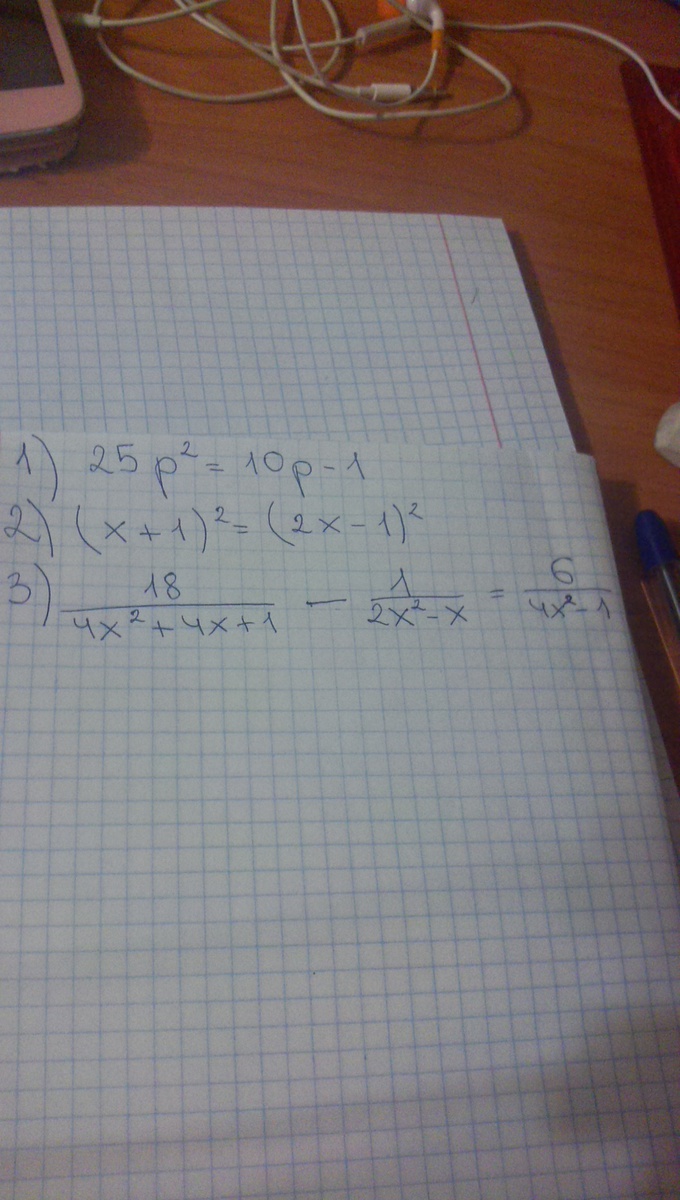 1) 25p² = 10p - 1
2) (x + 1)² = (2x - 1)²
3) 18/(4x² + 4x + 1) - 1/(2x² - x) = 6/(4x² - 1)